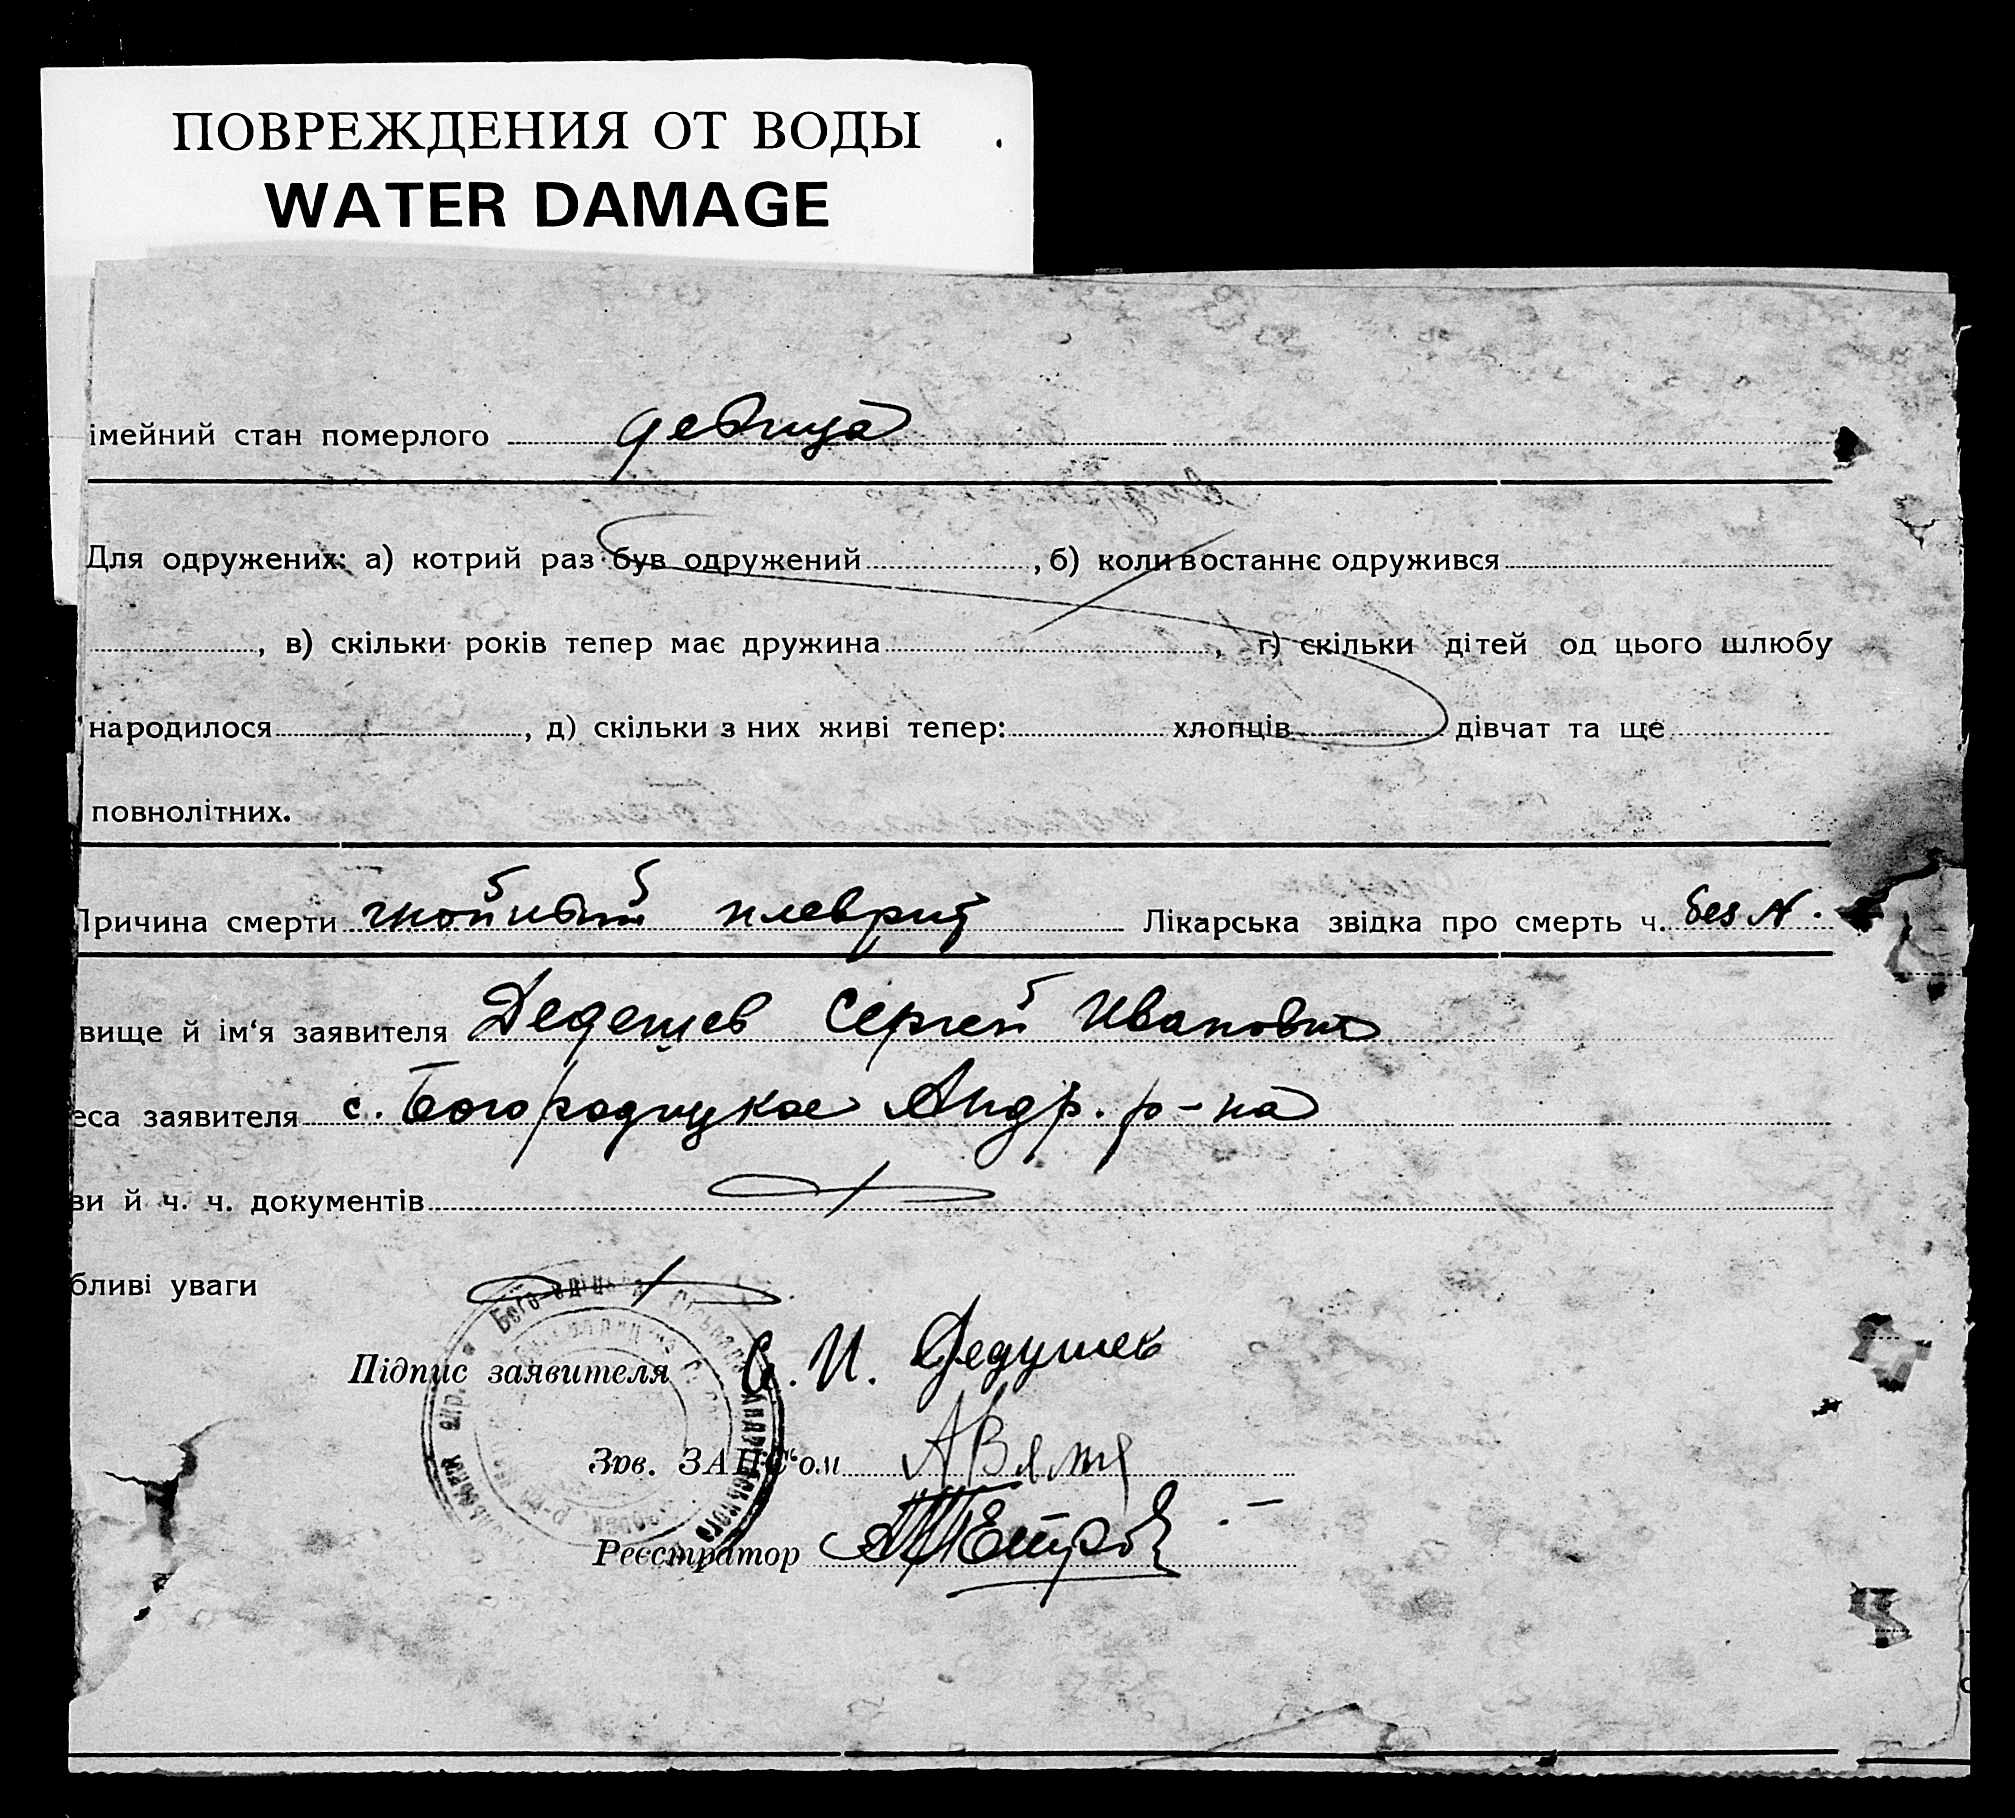 ПОВРЕЖДЕНИЯ ОТ ВОДЫ
WATER DAMAGE
імейний стан померлого девица
Для одружених: а) котрий раз був одружений , б) коли востаннє одружився
, в) скільки років тепер має дружина , г) скільки дітей од цього шлюбу
народилося , д) скільки з них живі тепер: хлопців дівчат та ще
повнолітних.
Причина смерти гнойный плеврит Лікарська звідка про смерть ч. без N.
вище й ім‘я заявителя Дедешев Сергей Иванович
еса заявителя с. Богородицкое Андр. р-на
ви й ч. ч. документів
бливі уваги
Підпис заявителя С. И. Дедушев
Зав. ЗАГС‘ом
Реєстратор